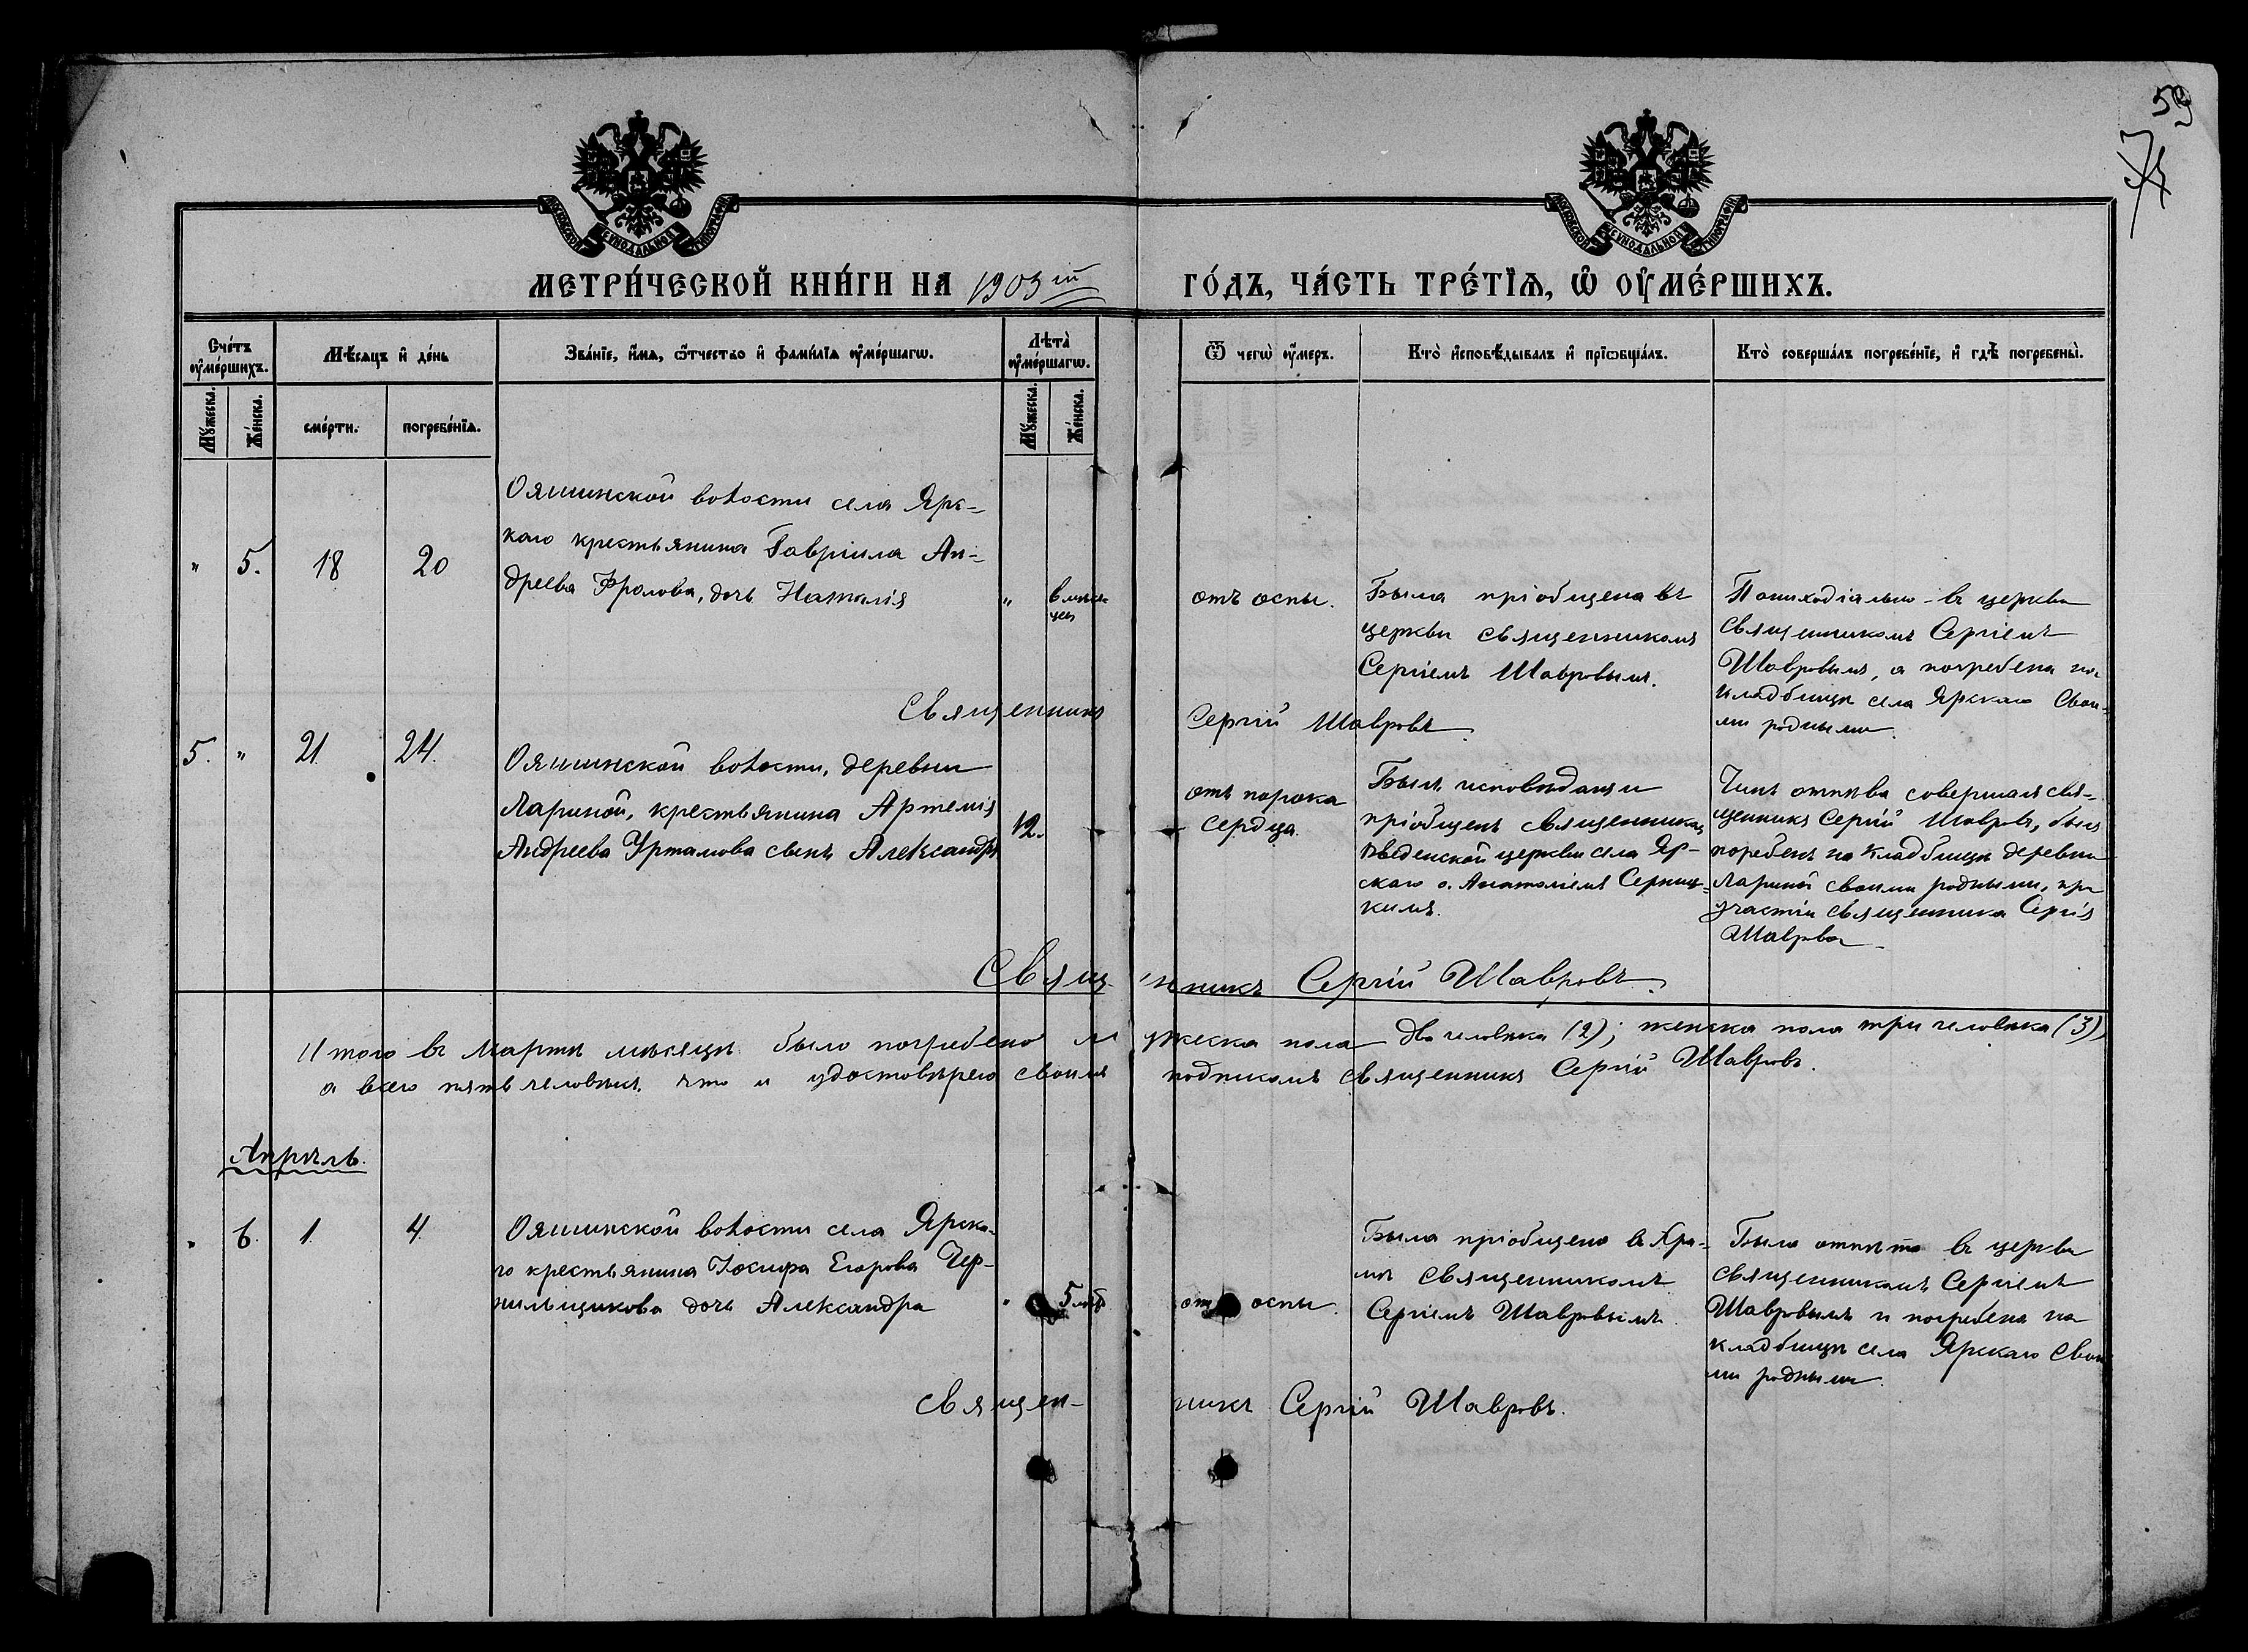 59
МЕТРИ́ЧЕСКОЙ КНИ́ГИ НА 1903 ій ГО́ДЪ, ЧА́СТЬ ТРЕ́ТІѦ, Ѡ ОУМЕ́РШИХЪ.
Сче́тъ оуме́ршихъ.
Мѣ́сѧцъ и де́нь
Зва́нїе, и́мѧ, ѻ́тчество и фами́лїѧ оуме́ршагѡ.
Лѣта̀ оуме́ршагѡ.
Ѿ чегѡ̀ оу́меръ.
Кто̀ и҆сповѣ́дывалъ и҆ прїѡбща́лъ.
Кто̀ соверша́лъ погребе́нїе, и҆ гдѣ̀ погребены̀.
Му́жеска.
Же́нска.
сме́рти.
погребе́нїѧ.
Му́жеска.
Же́нска.
" 5. 18 20
Ояшинской волости села Ярк-
каго крестьянина Гавріила Ан-
дреева Фролова, дочь Наталія
"
6 мѣся-
цев
отъ оспы.
Была пріобщена въ
церкви священникомъ
Сергіемъ Шавровымъ.
въ церкви
священникомъ Сергіемъ
Шавровымъ, а погребена на
кладбищѣ села Ярскаго свои-
ми родными.
Священникъ Сергій Шавровъ.
5. " 21. 24.
Ояшинской волости, деревни
Лариной, крестьянина Артемія
Андреева Уртамова сынъ Александръ
12.
отъ порока
сердца.
Былъ исповѣданъ и
пріобщенъ священникомъ
Введенской церкви села Яр-
скаго о. Анатоліемъ Серниц-
кимъ.
Чинъ отпѣва совершалъ свя-
щенникъ Сергій Шавровъ, былъ
погребенъ на кладбищѣ деревни
Лариной своими родными, при
участіи священника Сергія
Шаврова
Священникъ Сергій Шавровъ.
Итого въ Мартѣ мѣсяцѣ было погребено мужеска пола два человѣка (2); женска пола три человѣка (3)
а всего пять человѣкъ, что и удостовѣряю своимъ подписомъ священникъ Сергій Шавровъ.
Апрѣль.
" 6. 1. 4.
Ояшинской волости села Ярска-
го крестьянина Іосифа Егорова Чер-
нильщикова дочь Александра
"
5 мѣс
отъ оспы.
Была пріобщена въ Хра-
мѣ священникомъ
Сергіемъ Шавровымъ.
Была отпѣта въ церкви
священникомъ Сергіемъ
Шавровымъ и погребена на
кладбищѣ села Ярскаго свои
ми родными.
Священ-
никъ Сергій Шавровъ.